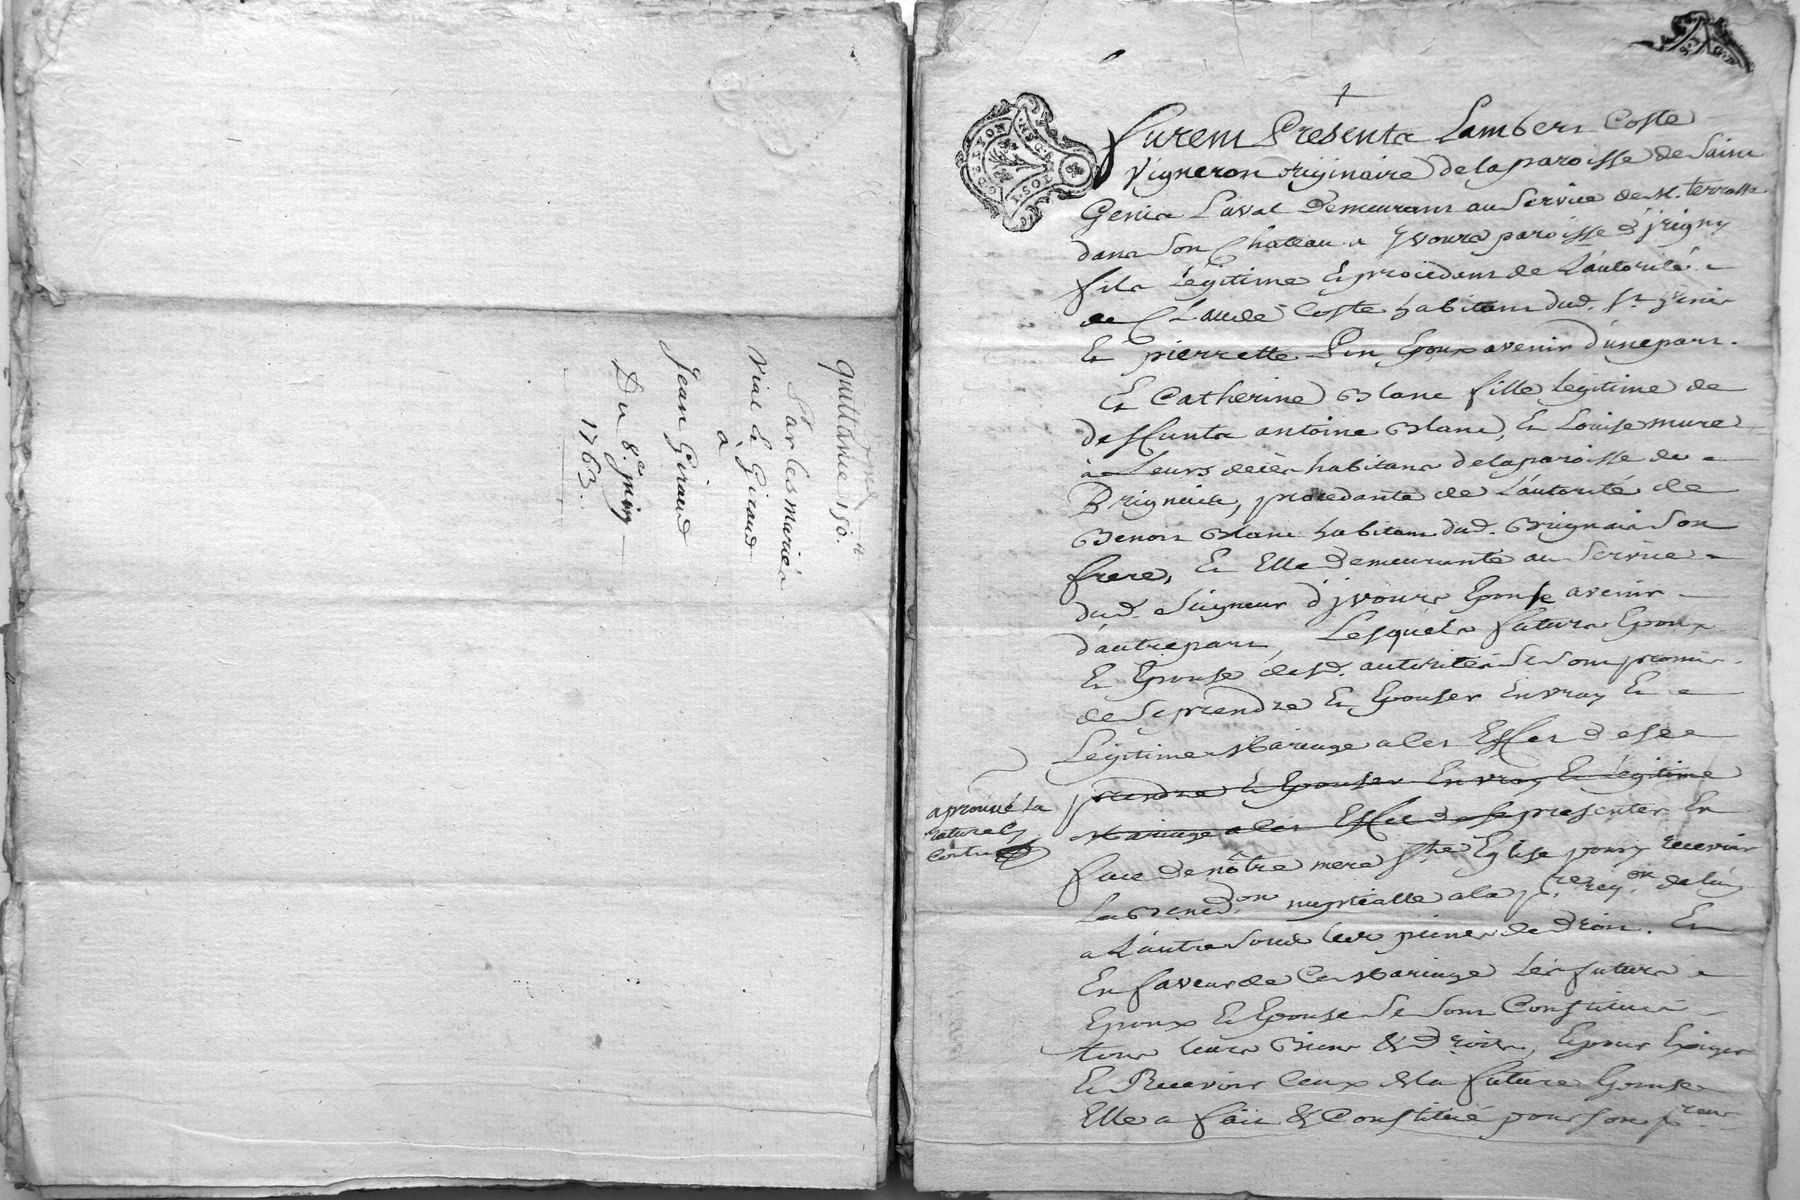 quittance 150.tt
Par les mariés
Vial & Giraud
à
Jean Giraud
Du 8.e juin
1763.
Furent Presents Lambert Coste
Vigneron originaire de la paroisse de Saint
Genis Laval Demeurant au Service de M. terrasse
dans son Chateau a yvours paroisse d'jrigny
fils Légitime & procédant de L'autorité
de Claude Coste habitant dud. St. genis
Et pierrette Pin Epoux avenir d'une part.
Et Catherine Blanc fille Legitime de
deffunts antoine Blanc, Et Louise mure
à Leurs décès habitans de la paroisse de
Brignais, procédante de L'autorité de
Benoit Blanc habitant dud. Brignais son
frere, Et Elle demeurante au Service
dud. Seigneur d'jvours Epouse avenir
d'autre part, Lesquels futurs Epoux
Et Epouse desd. autorités Se Sont promis
de Se prendre Et Epouser En vray Et
Légitime Mariage a Les Effet de se
prendre & Epouser En vray & Légitime
Mariage a Les Effet de se presenter En
aprouvé La
rature cy
contre
face de nôtre mere Ste Eglise pour y recevoir
La Bened.on nuptialle a la p.re req.on de l'un
a L'autre Sous les peines de Droit. Et
En faveur de Ce Mariage Les futurs
Epoux & Epouse Se Sont Constitués
tous leurs Biens & Droits, Et pour Exiger
Et Recevoir Ceux de la future Epouse
Elle a fait & Constitué pour son p.reur